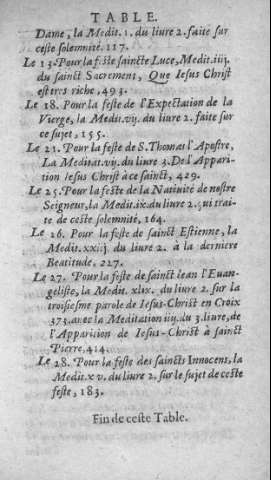 TABLE.
Dame, la Medit. 1. du liure 2. faite sur
ceste solemnité. 117.
Le 13. Pour la feste saincte Luce, Medit. iiij.
du sainct Sacrement, Que Iesus Christ
est tres riche, 493.
Le 18. Pour la feste de l'Expectation de la
Vierge, la Medit. vij. du liure 2. faite sur
ce sujet, 155.
Le 21. Pour la feste de S. Thomas l'Apostre,
La Meditat. vij. du liure 3. De l'Appari-
tion Iesus Christ à ce sainct, 429.
Le 25. Pour la feste de la Natiuité de nostre
Seigneur, la Medit. ix. du liure 2. qui trai-
te de ceste solemnité, 164.
Le 26. Pour la feste de sainct Estienne, la
Medit. xxiij. du liure 2. à la derniere
Beatitude. 227.
Le 27. Pour la feste de sainct Iean l'Euan-
geliste, la Medit. xlix. du liure 2. sur la
troisiesme parole de Iesus-Christ en Croix
373. avec la Meditation iiij. du 3. liure, de
l'Apparition de Iesus-Christ à sainct
Pierre, 414.
Le 28. Pour la feste des saincts Innocens, la
Medit. xv. du liure 2. sur le sujet de ceste
feste, 183.
Fin de ceste Table.